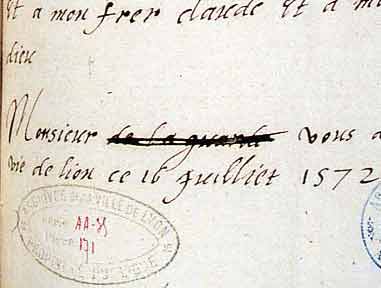 Et a mon frer claude Et a m
dieu
Monsieur de la guarde vous a
vie de lion ce 16 Juilliet 1572
ARCHIVES DE LA VILLE DE LYON
AA-35
171